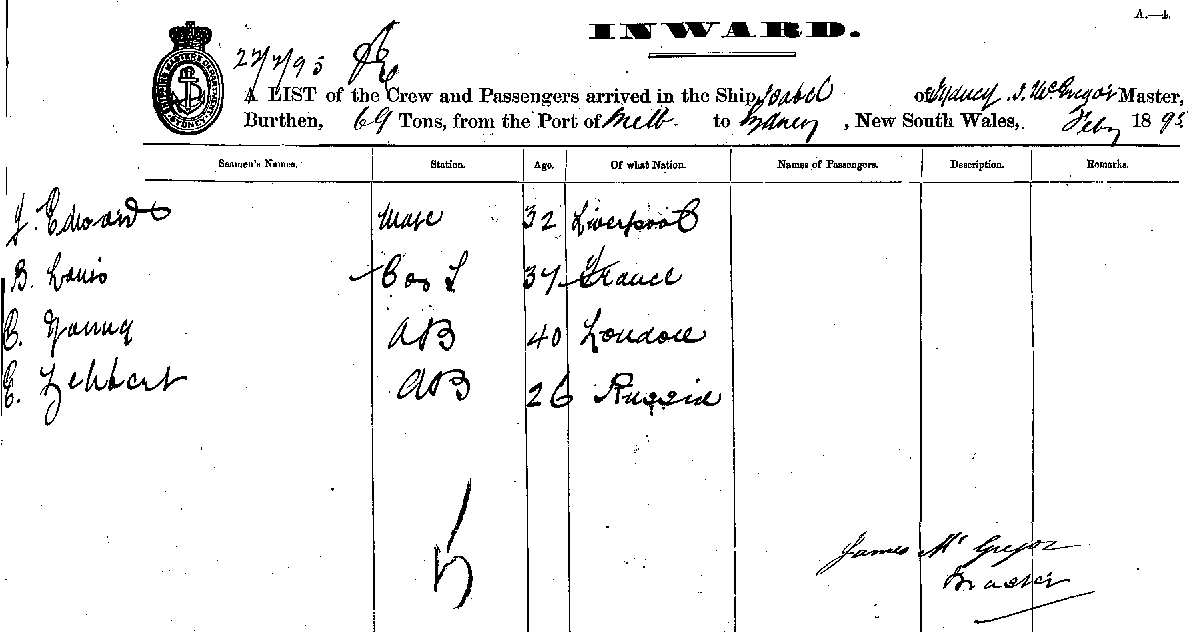 A.—1.
INWARD.
22/2/95
A LIST of the Crew and Passengers arrived in the Ship Isabel of Sydney, J. McGregor Master,
Burthen, 69 Tons, from the Port of Melb. to Sydney, New South Wales, Feby 1895
Seamen's Names. Station. Age. Of what Nation. Names of Passengers. Description. Remarks.
J. Edwards Mate 32 Liverpool
B. Louis 37 France
C. Young AB 40 London
E. AB 26 Russia
5
James McGregor
Master